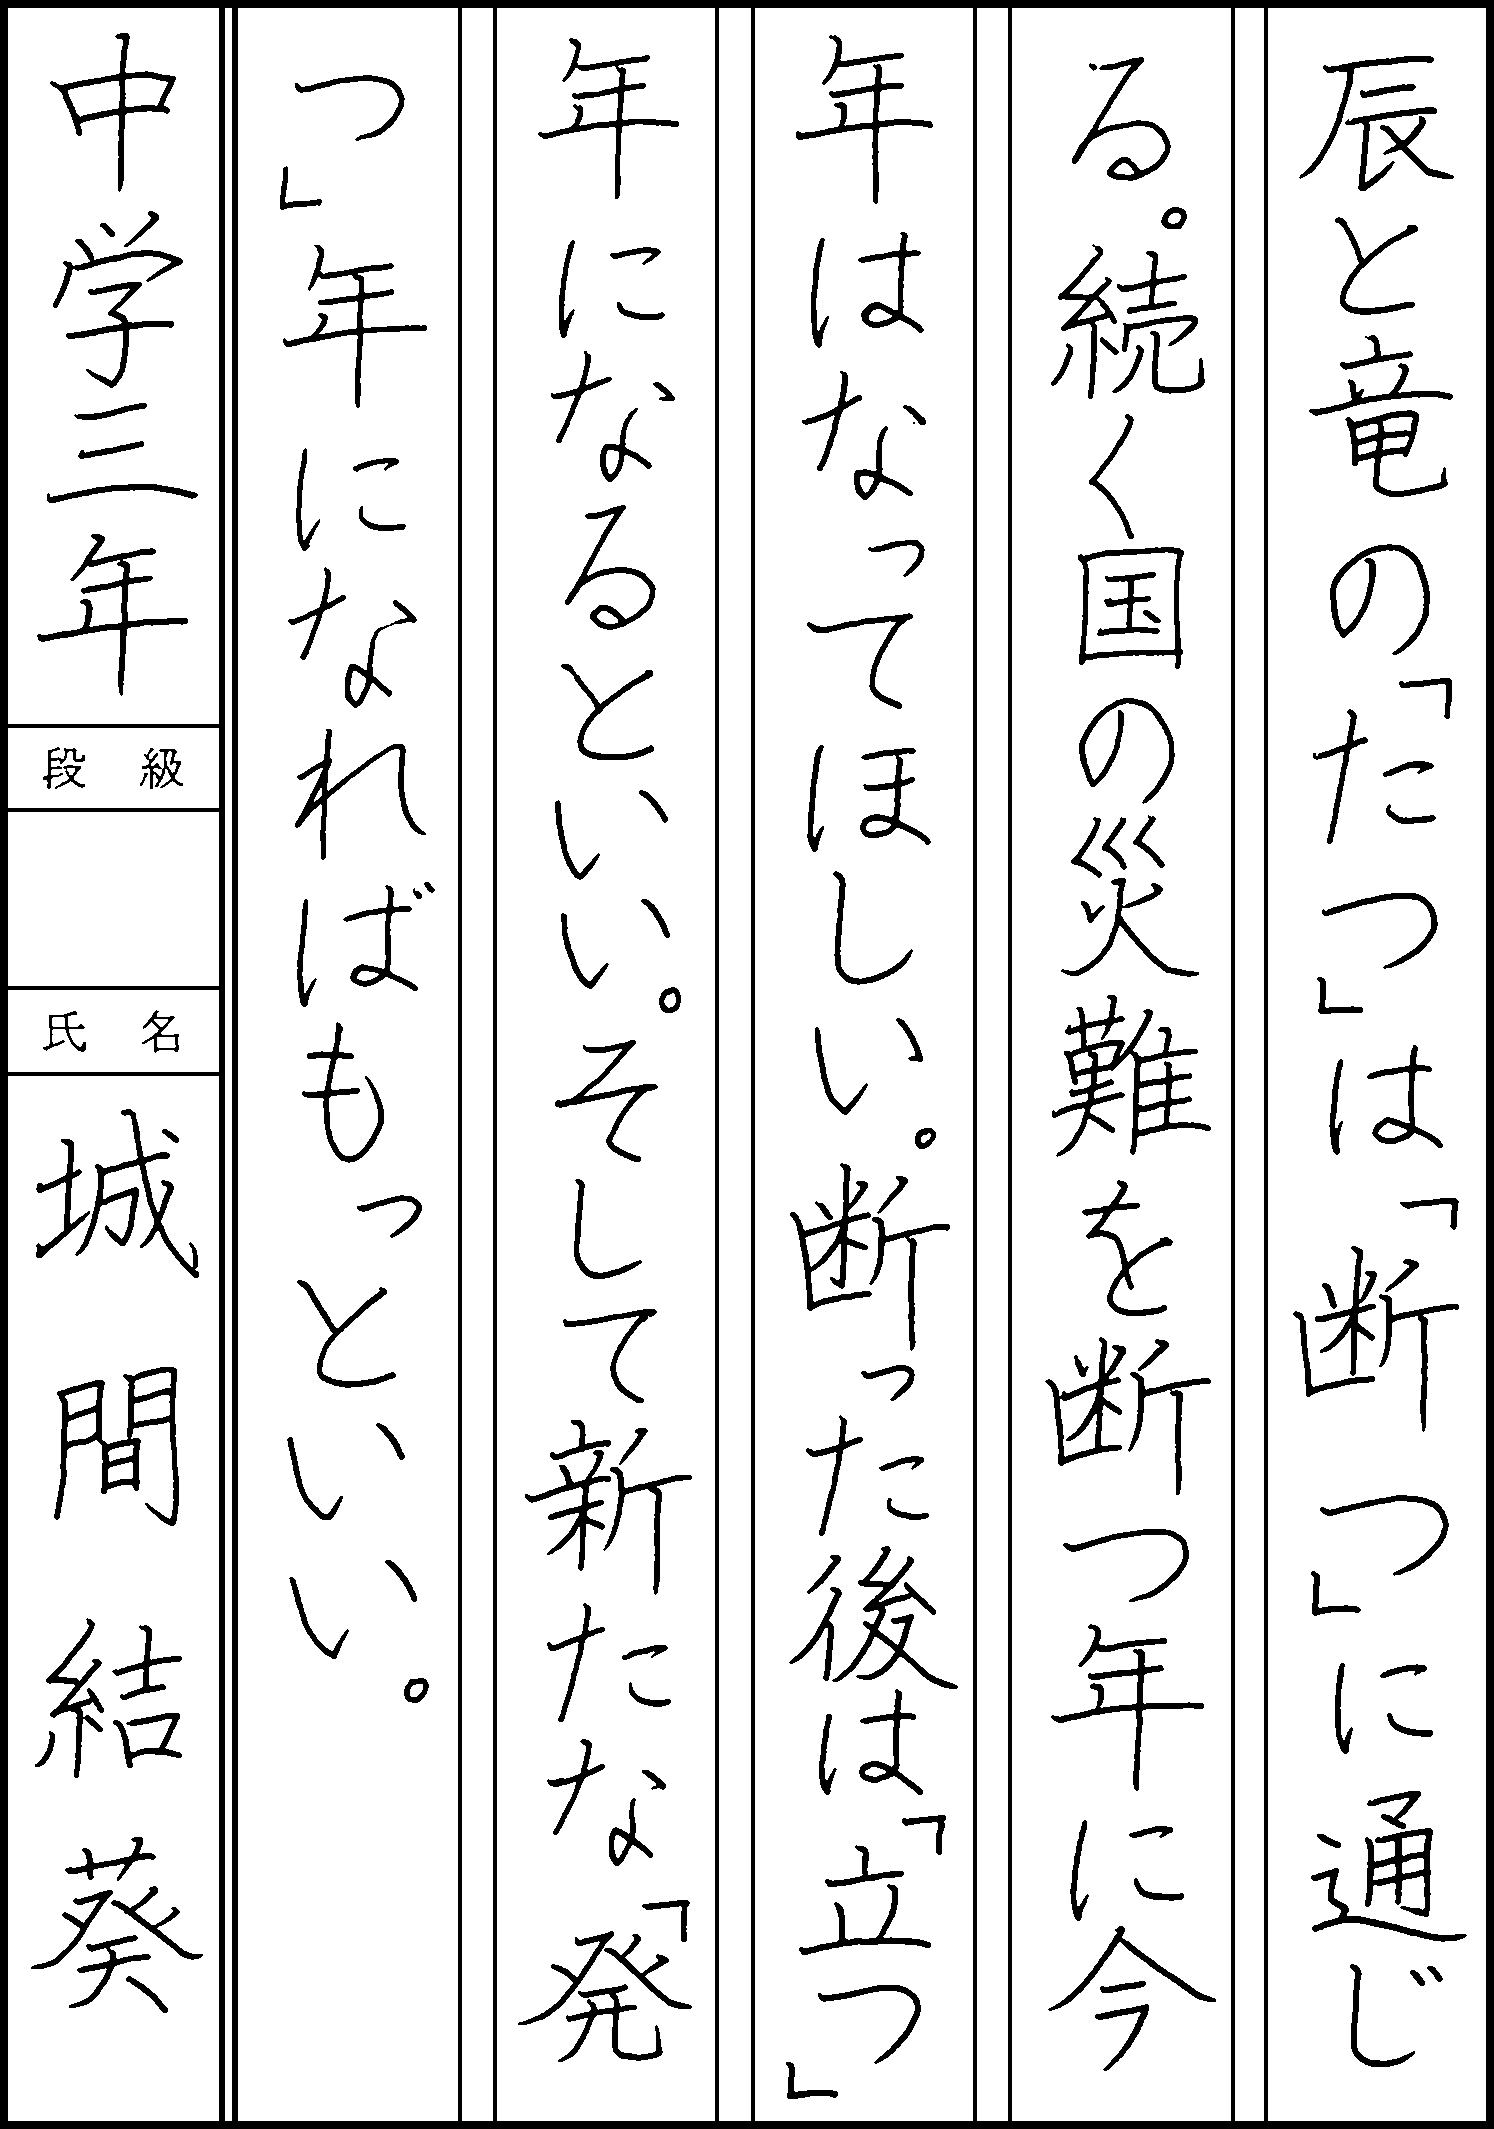 辰と竜の「たつ」は「断つ」に通じ
る。続く国の災難を断つ年に今
年はなってほしい。断った後は「立つ」
年になるといい。そして新たな「発
つ」年になればもっといい。
中学三年
段級
氏名
城間結葵